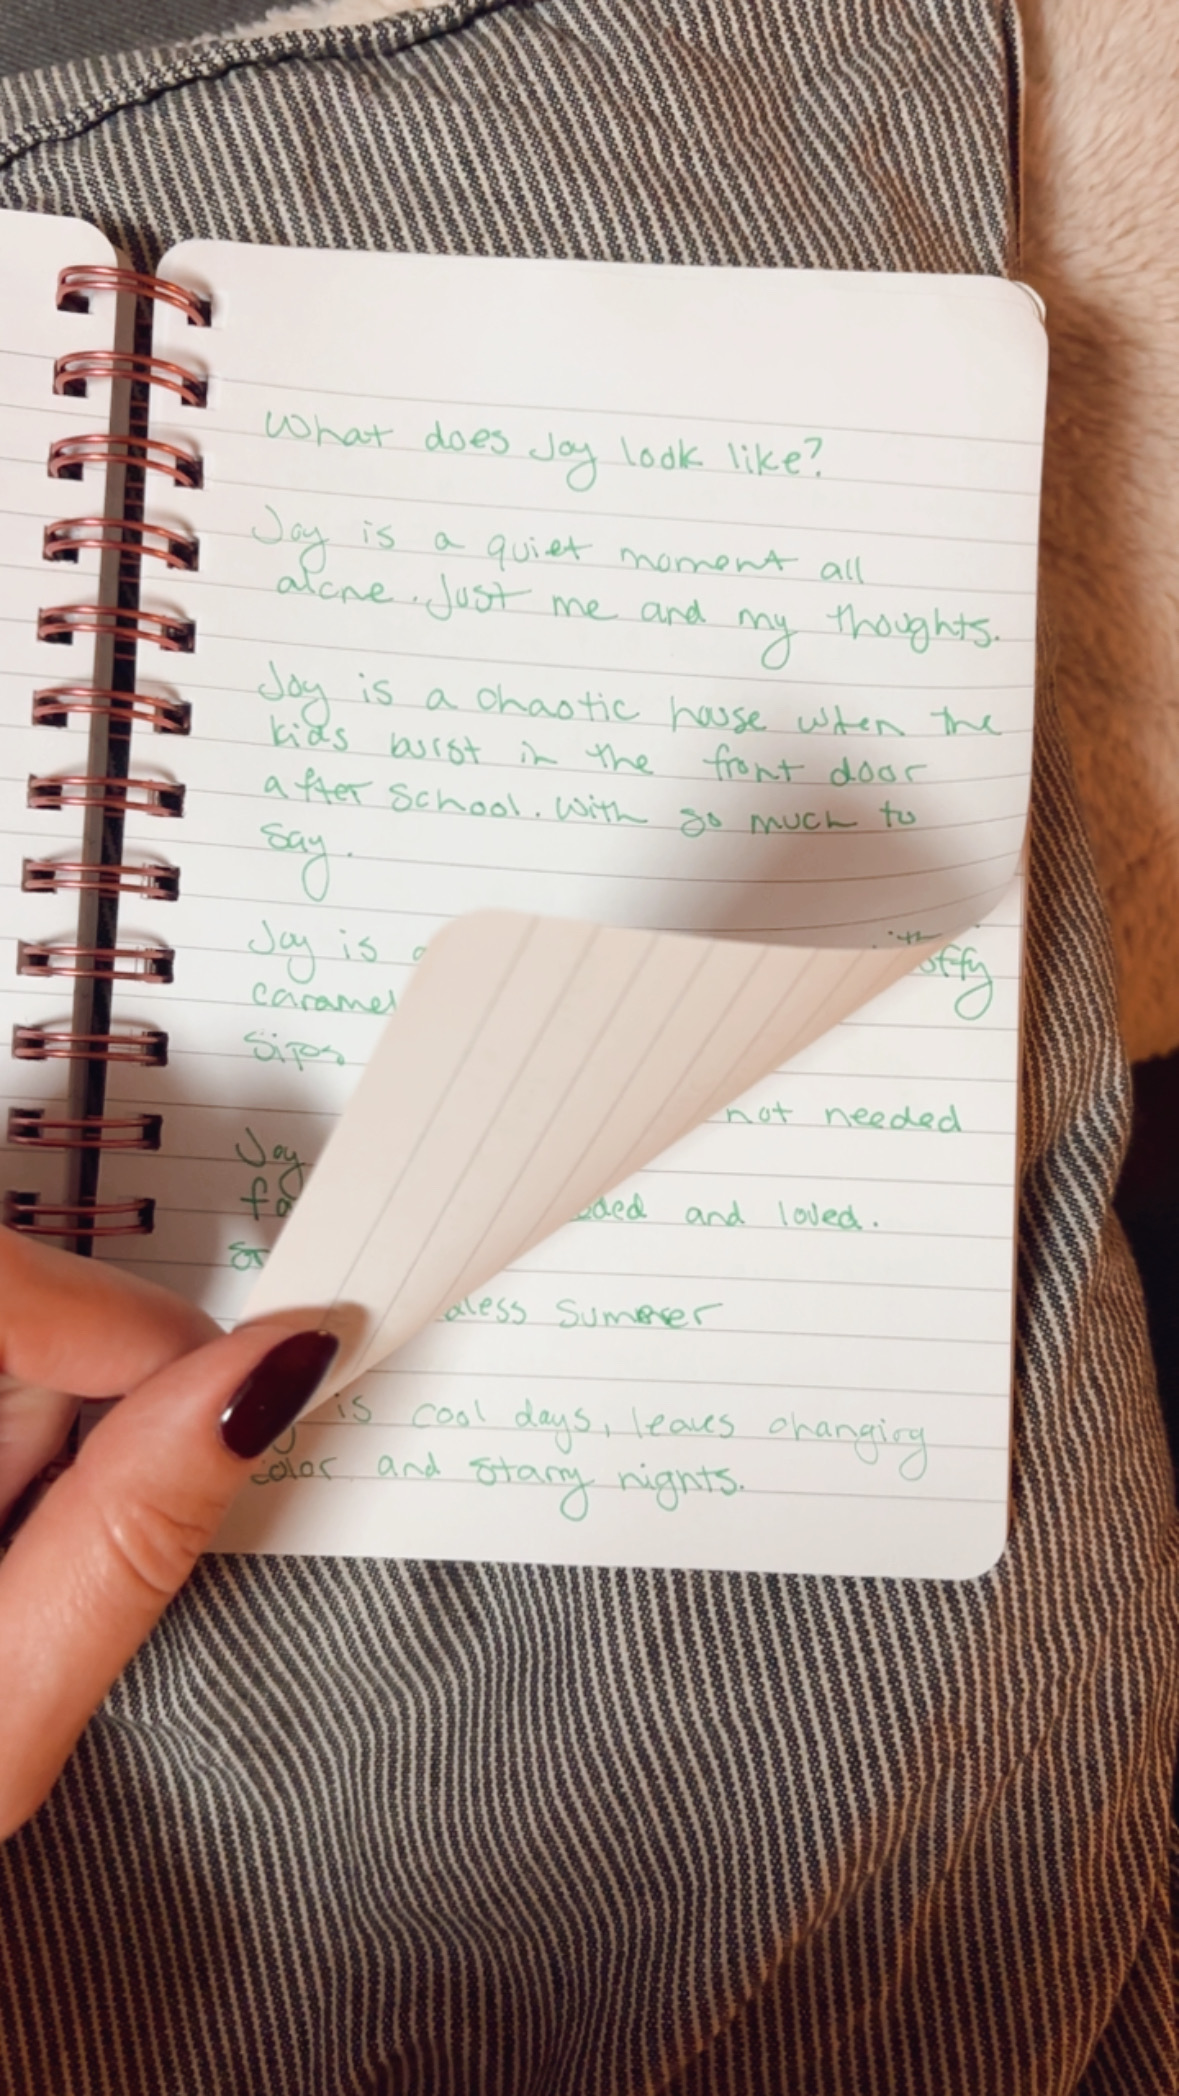 What does Joy look like?
Joy is a quiet moment all
alone. Just me and my thoughts.
Joy is a chaotic house when the
kids burst in the front door
after school. With so much to
say.
Joy is
caramel
sips
not needed
Joy
and loved.
Summer
is cool days, leaves changing
color and starry nights.